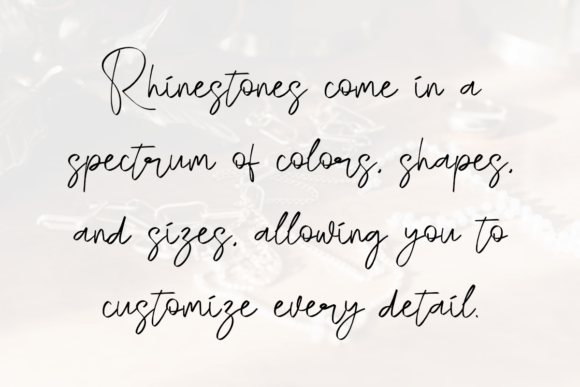 Rhinestones come in a
spectrum of colors, shapes,
and sizes, allowing you to
customize every detail.